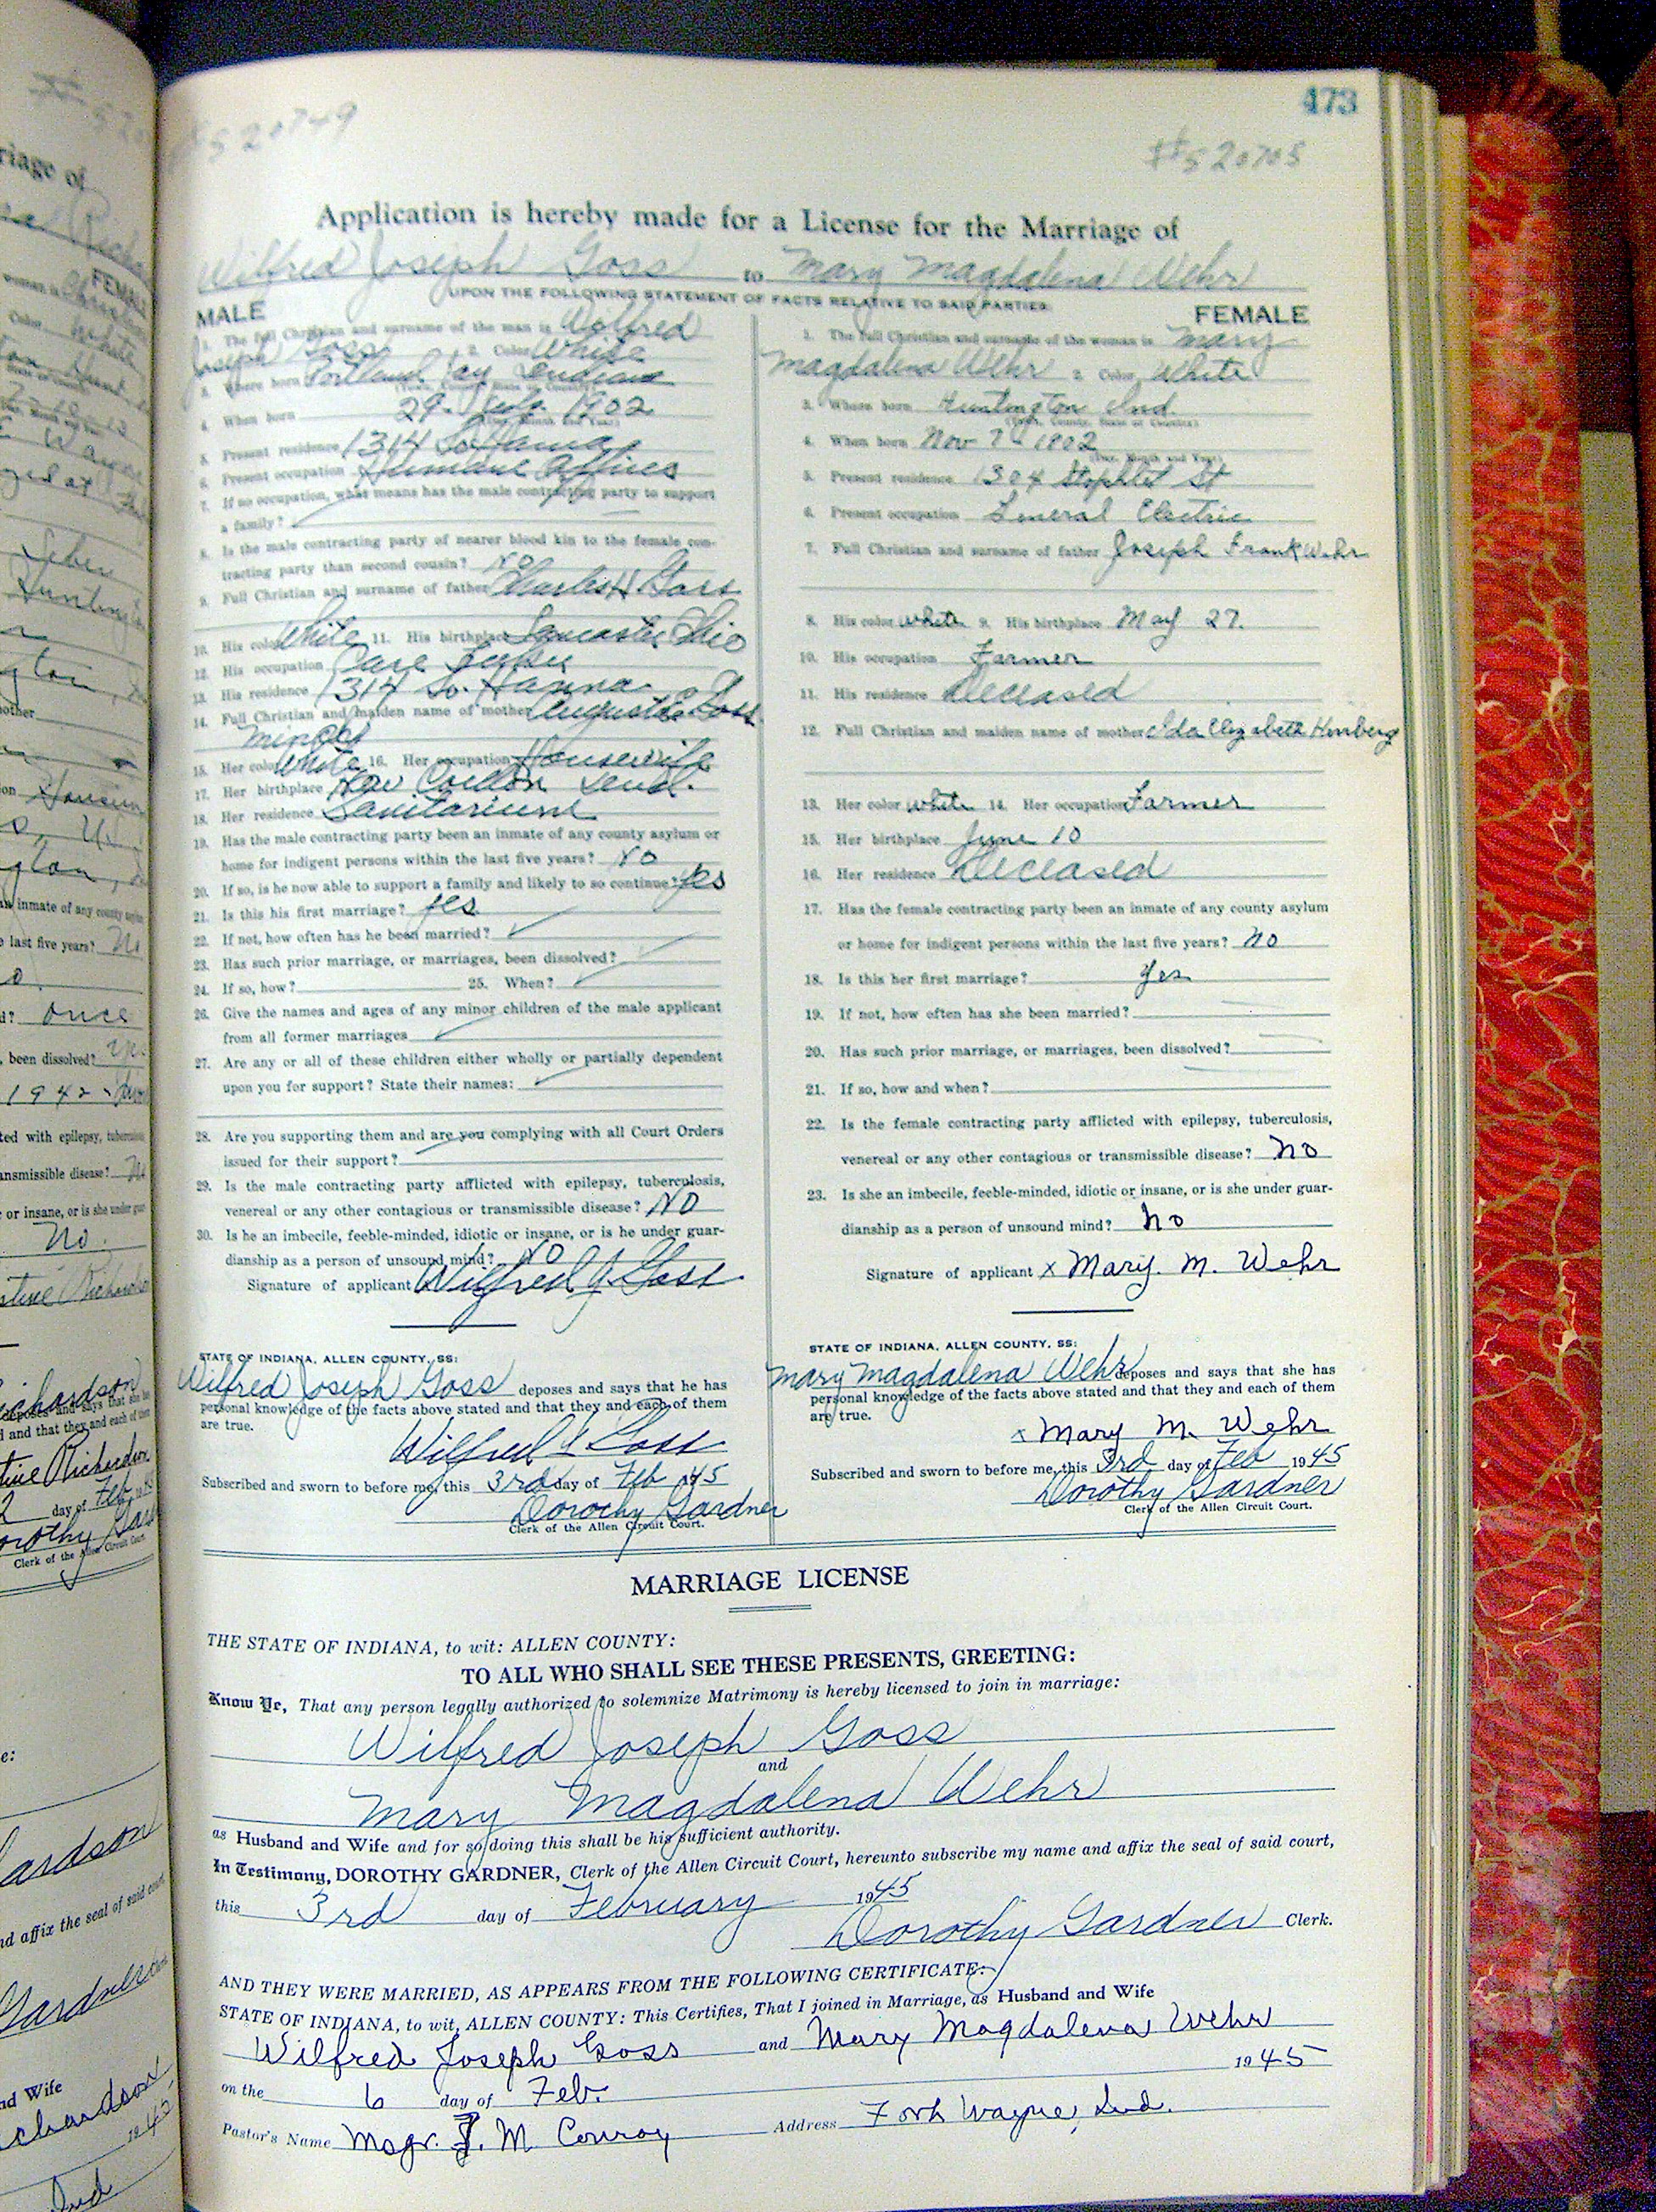 473
520749
#520705
Application is hereby made for a License for the Marriage of
Wilfred Joseph Goss to Mary Magdalena Wehr
UPON THE FOLLOWING STATEMENT OF FACTS RELATIVE TO SAID PARTIES:
MALE
1. The full Christian and surname of the man is Wilfred
Joseph Goss 2. Color White
3. Where born Portland Jay Indiana
(Town, County, State or Country)
4. When born 29 1902
(Day, Month and Year)
5. Present residence 1314 So. Hanna
6. Present occupation Humane Officer
7. If no occupation, what means has the male contracting party to support
a family?
8. Is the male contracting party of nearer blood kin to the female con-
tracting party than second cousin? No
9. Full Christian and surname of father Charles H. Goss
10. His color White 11. His birthplace Lancaster Ohio
12. His occupation
13. His residence 1314 So. Hanna
14. Full Christian and maiden name of mother Augusta Goss
15. Her color White 16. Her occupation Housewife
17. Her birthplace New Ind.
18. Her residence Sanitarium
19. Has the male contracting party been an inmate of any county asylum or
home for indigent persons within the last five years? No
20. If so, is he now able to support a family and likely to so continue? Yes
21. Is this his first marriage? Yes
22. If not, how often has he been married?
23. Has such prior marriage, or marriages, been dissolved?
24. If so, how? 25. When?
26. Give the names and ages of any minor children of the male applicant
from all former marriages
27. Are any or all of these children either wholly or partially dependent
upon you for support? State their names:
28. Are you supporting them and are you complying with all Court Orders
issued for their support?
29. Is the male contracting party afflicted with epilepsy, tuberculosis,
venereal or any other contagious or transmissible disease? No
30. Is he an imbecile, feeble-minded, idiotic or insane, or is he under guar-
dianship as a person of unsound mind? No
Signature of applicant Wilfred J. Goss
STATE OF INDIANA, ALLEN COUNTY, SS:
Wilfred Joseph Goss deposes and says that he has
personal knowledge of the facts above stated and that they and each of them
are true.
Wilfred J Goss
Subscribed and sworn to before me, this 3rd day of Feb 1945
Dorothy Gardner
Clerk of the Allen Circuit Court.
FEMALE
1. The full Christian and surname of the woman is Mary
Magdalena Wehr 2. Color White
3. Where born Huntington Ind.
(Town, County, State or Country)
4. When born Nov 7 - 1902
(Day, Month and Year)
5. Present residence 1304 Stophlet St
6. Present occupation General Electric
7. Full Christian and surname of father Joseph Frank Wehr
8. His color white 9. His birthplace May 27.
10. His occupation Farmer
11. His residence Deceased
12. Full Christian and maiden name of mother Ida Elizabeth
13. Her color white 14. Her occupation Farmer
15. Her birthplace June 10
16. Her residence Deceased
17. Has the female contracting party been an inmate of any county asylum
or home for indigent persons within the last five years? No
18. Is this her first marriage? Yes
19. If not, how often has she been married?
20. Has such prior marriage, or marriages, been dissolved?
21. If so, how and when?
22. Is the female contracting party afflicted with epilepsy, tuberculosis,
venereal or any other contagious or transmissible disease? No
23. Is she an imbecile, feeble-minded, idiotic or insane, or is she under guar-
dianship as a person of unsound mind? No
Signature of applicant x Mary. M. Wehr
STATE OF INDIANA, ALLEN COUNTY, SS:
Mary Magdalena Wehr deposes and says that she has
personal knowledge of the facts above stated and that they and each of them
are true.
x Mary M. Wehr
Subscribed and sworn to before me, this 3rd day of Feb 1945
Dorothy Gardner
Clerk of the Allen Circuit Court.
MARRIAGE LICENSE
THE STATE OF INDIANA, to wit: ALLEN COUNTY:
TO ALL WHO SHALL SEE THESE PRESENTS, GREETING:
Know Ye, That any person legally authorized to solemnize Matrimony is hereby licensed to join in marriage:
Wilfred Joseph Goss
and
Mary Magdalena Wehr
as Husband and Wife and for so doing this shall be his sufficient authority.
In Testimony, DOROTHY GARDNER, Clerk of the Allen Circuit Court, hereunto subscribe my name and affix the seal of said court,
this 3rd day of February 1945
Dorothy Gardner Clerk.
AND THEY WERE MARRIED, AS APPEARS FROM THE FOLLOWING CERTIFICATE:
STATE OF INDIANA, to wit, ALLEN COUNTY: This Certifies, That I joined in Marriage, as Husband and Wife
Wilfred Joseph Goss and Mary Magdalena Wehr
on the 6 day of Feb. 1945
Pastor's Name Msgr. J. M Conroy Address Fort Wayne, Ind.